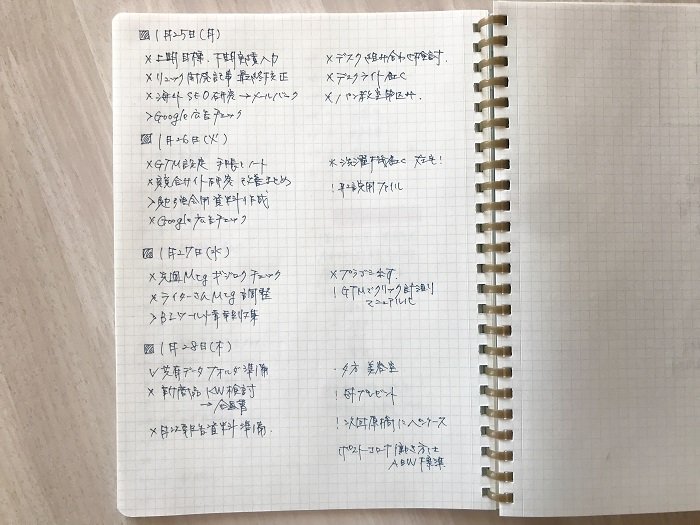 1月25日(月)
×上期目標、下期実績入力
×リュック開発記事 最終校正
×海外SEO研究→メールバック
>Google広告チェック
×デスク組み合わせ検討.
×デスクライト
×パン教室
1月26日(火)
×GTM設定 手帳とノート
×競合サイト研究 改善まとめ
>勉強会用資料作成
×Google広告チェック
洗濯機 在宅!
! 用ファイル
1月27日(水)
×先週Mtgギジロクチェック
×ライターさんMtg調整
>B2ワールド
×プラゴミ出す.
!GTMでクリック計測り
マニュアル化
1月28日(木)
✓共有データフォルダ準備
×新商品KW検討
→企画書
×月次報告資料準備.
・夕方 美容室
!母プレゼント
!次回原稿にペンケース
ポストコロナ働き方は
ABW標準